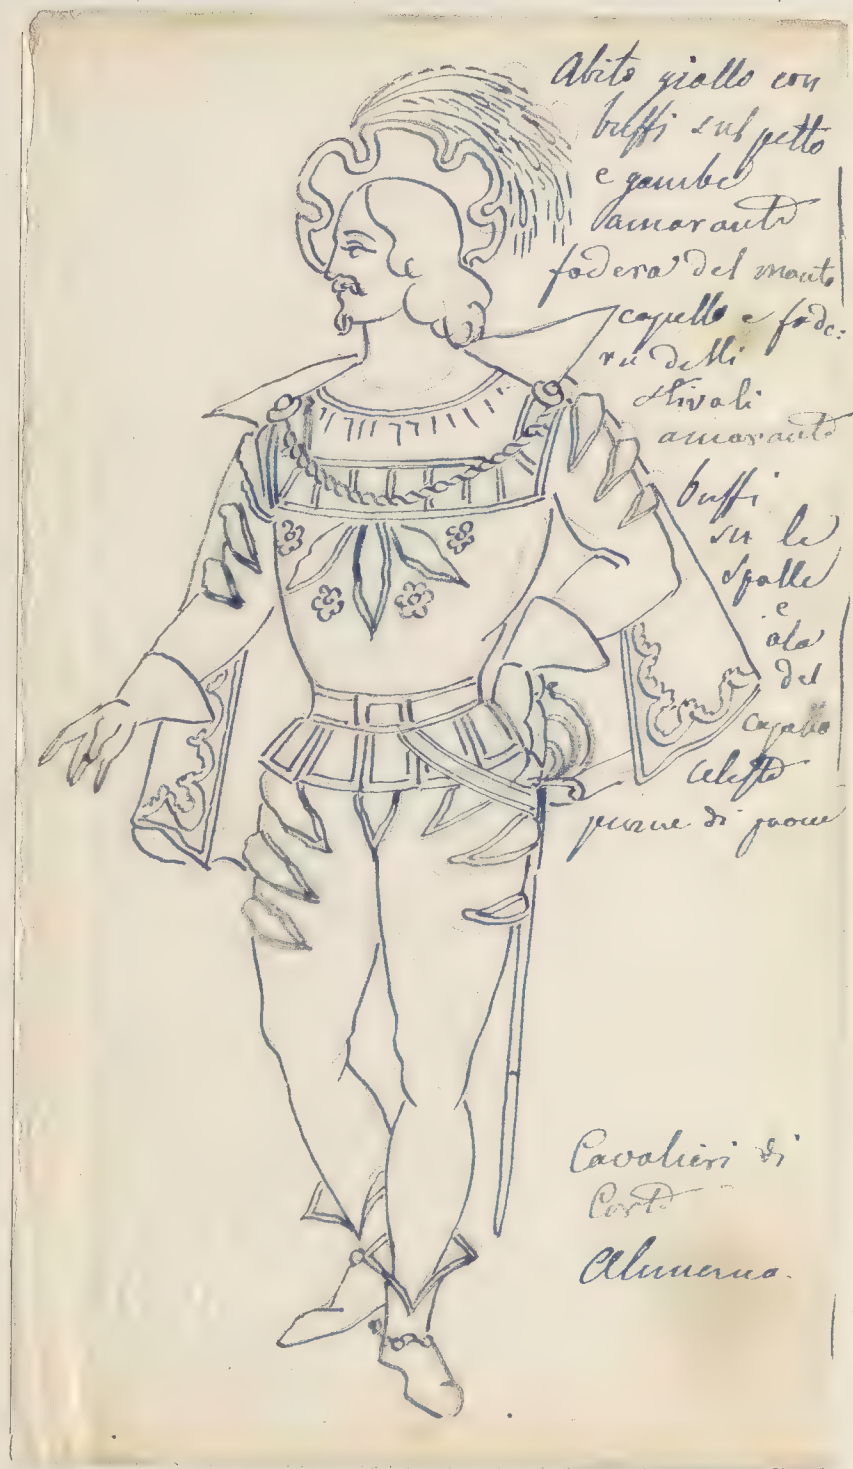 Abito giallo con
buffi sul petto
e gambe
amorante
fodera del manto
capello e fode:
ra delli
stivali
amorante
buffi
su le
spalle
e
ala
del
capello
celeste
piume di pavone
Cavalieri di
Corte